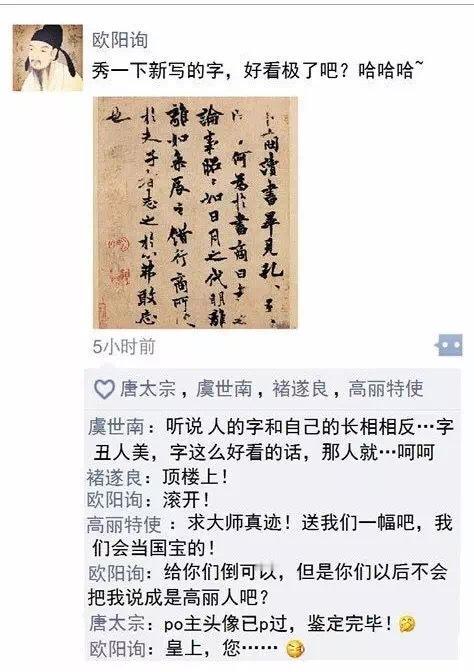 欧阳询
秀一下新写的字，好看极了吧？哈哈哈~
商讀書畢見孔
何為於書商曰書之
論事昭如日月之代明離
離如參辰之錯行商所
於夫子者志之於心弗敢忘
也
5小时前
唐太宗，虞世南，褚遂良，高丽特使
虞世南：听说人的字和自己的长相相反…字
丑人美，字这么好看的话，那人就…呵呵
褚遂良：顶楼上！
欧阳询：滚开！
高丽特使：求大师真迹！送我们一幅吧，我
们会当国宝的！
欧阳询：给你们倒可以，但是你们以后不会
把我说成是高丽人吧？
唐太宗：po主头像已p过，鉴定完毕！
欧阳询：皇上，您……